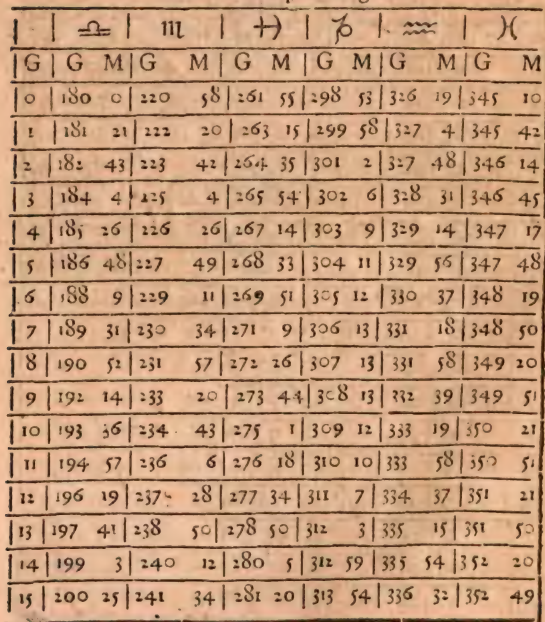 ♎ ♏ ♐ ♑ ♒ ♓
G G M G M G M G M G M G M
0 180 0 220 58 261 55 298 53 326 19 345 10
1 181 21 222 20 263 15 299 58 327 4 345 42
2 182 43 223 42 264 35 301 2 327 48 346 14
3 184 4 225 4 265 54 302 6 328 31 346 45
4 185 26 226 26 267 14 303 9 329 14 347 17
5 186 48 227 49 268 33 304 11 329 56 347 48
6 188 9 229 11 269 51 305 12 330 37 348 19
7 189 31 230 34 271 9 306 13 331 18 348 50
8 190 52 231 57 272 26 307 13 331 58 349 20
9 192 14 233 20 273 44 308 13 332 39 349 51
10 193 36 234 43 275 1 309 12 333 19 350 21
11 194 57 236 6 276 18 310 10 333 58 350 51
12 196 19 237 28 277 34 311 7 334 37 351 21
13 197 41 238 50 278 50 312 3 335 15 351 50
14 199 3 240 12 280 5 312 59 335 54 352 20
15 200 25 241 34 281 20 313 54 336 32 352 49